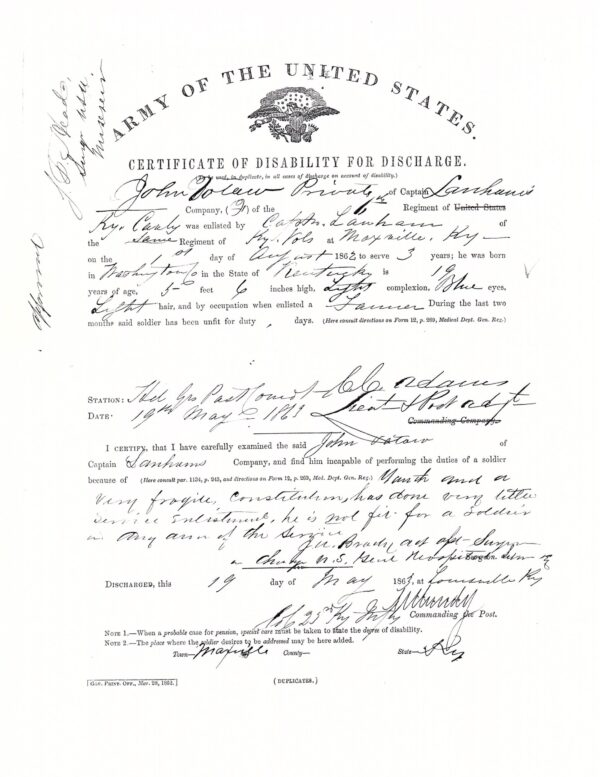 ARMY OF THE UNITED STATES.
CERTIFICATE OF DISABILITY FOR DISCHARGE.
(To be used, in duplicate, in all cases of discharge on account of disability.)
John Private of Captain Lanham's
Company, (F) of the 6th Regiment of United States
Ky. Cavly was enlisted by Captn. Lanham of
the Same Regiment of Ky. Vols at Maxville, Ky
on the 1st day of August 1862 to serve 3 years; he was born
in Washington Co in the State of Kentucky is 19
years of age, 5 feet 6 inches high, Light complexion, Blue eyes,
Light hair, and by occupation when enlisted a Farmer During the last two
months said soldier has been unfit for duty days. (Here consult directions on Form 12, p. 269, Medical Dept. Gen. Reg.)
STATION: Hd Qrs Post
DATE: 19th May 1863
C.C. Adams
Lieut & Post Adjt
Commanding Company.
I CERTIFY, that I have carefully examined the said John of
Captain Lanhams Company, and find him incapable of performing the duties of a soldier
because of (Here consult par. 1134, p. 243, and directions on Form 12, p. 269, Med. Dept. Gen. Reg.) Youth and a
very fragile, Constitution, has done very little
service Enlistment, he is not fit for a Soldier
in any arm of the Service
Brady act asst Surgn
in charge U.S. Genl Hospital
DISCHARGED, this 19 day of May 1863, at Louisville Ky
Col 23rd Ky Infty Commanding the Post.
NOTE 1.—When a probable case for pension, special care must be taken to state the degree of disability.
NOTE 2.—The place where the soldier desires to be addressed may be here added.
Town—Maxville County— State—Ky
[GOV. PRINT. OFF., Nov. 28, 1862.]
(DUPLICATES.)